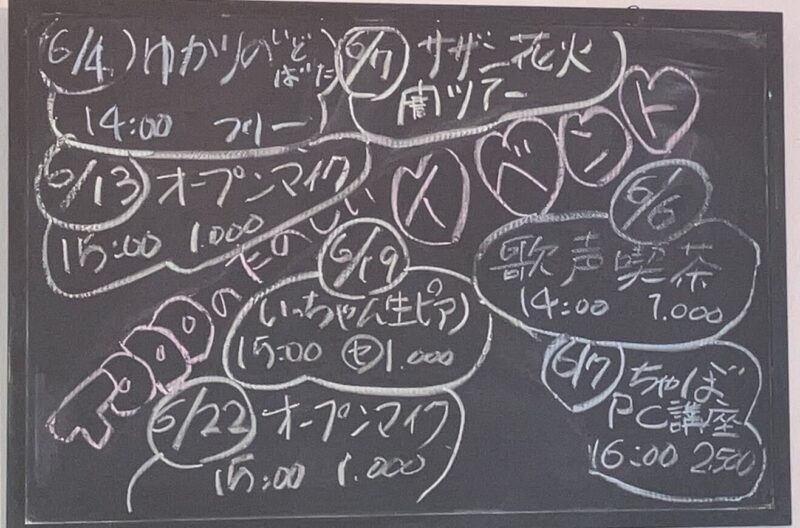 6/4 ゆかりのいどばた
14:00 フリー
6/7 サザン花火
ツアー
イベント
のたのしい
6/13 オープンマイク
15:00 1.000
6/6
歌声喫茶
14:00 1.000
6/19
いっちゃん生ピアノ
15:00 セ 1.000
6/7 ちゃば
PC講座
16:00 2,500
6/22 オープンマイク
15:00 1.000